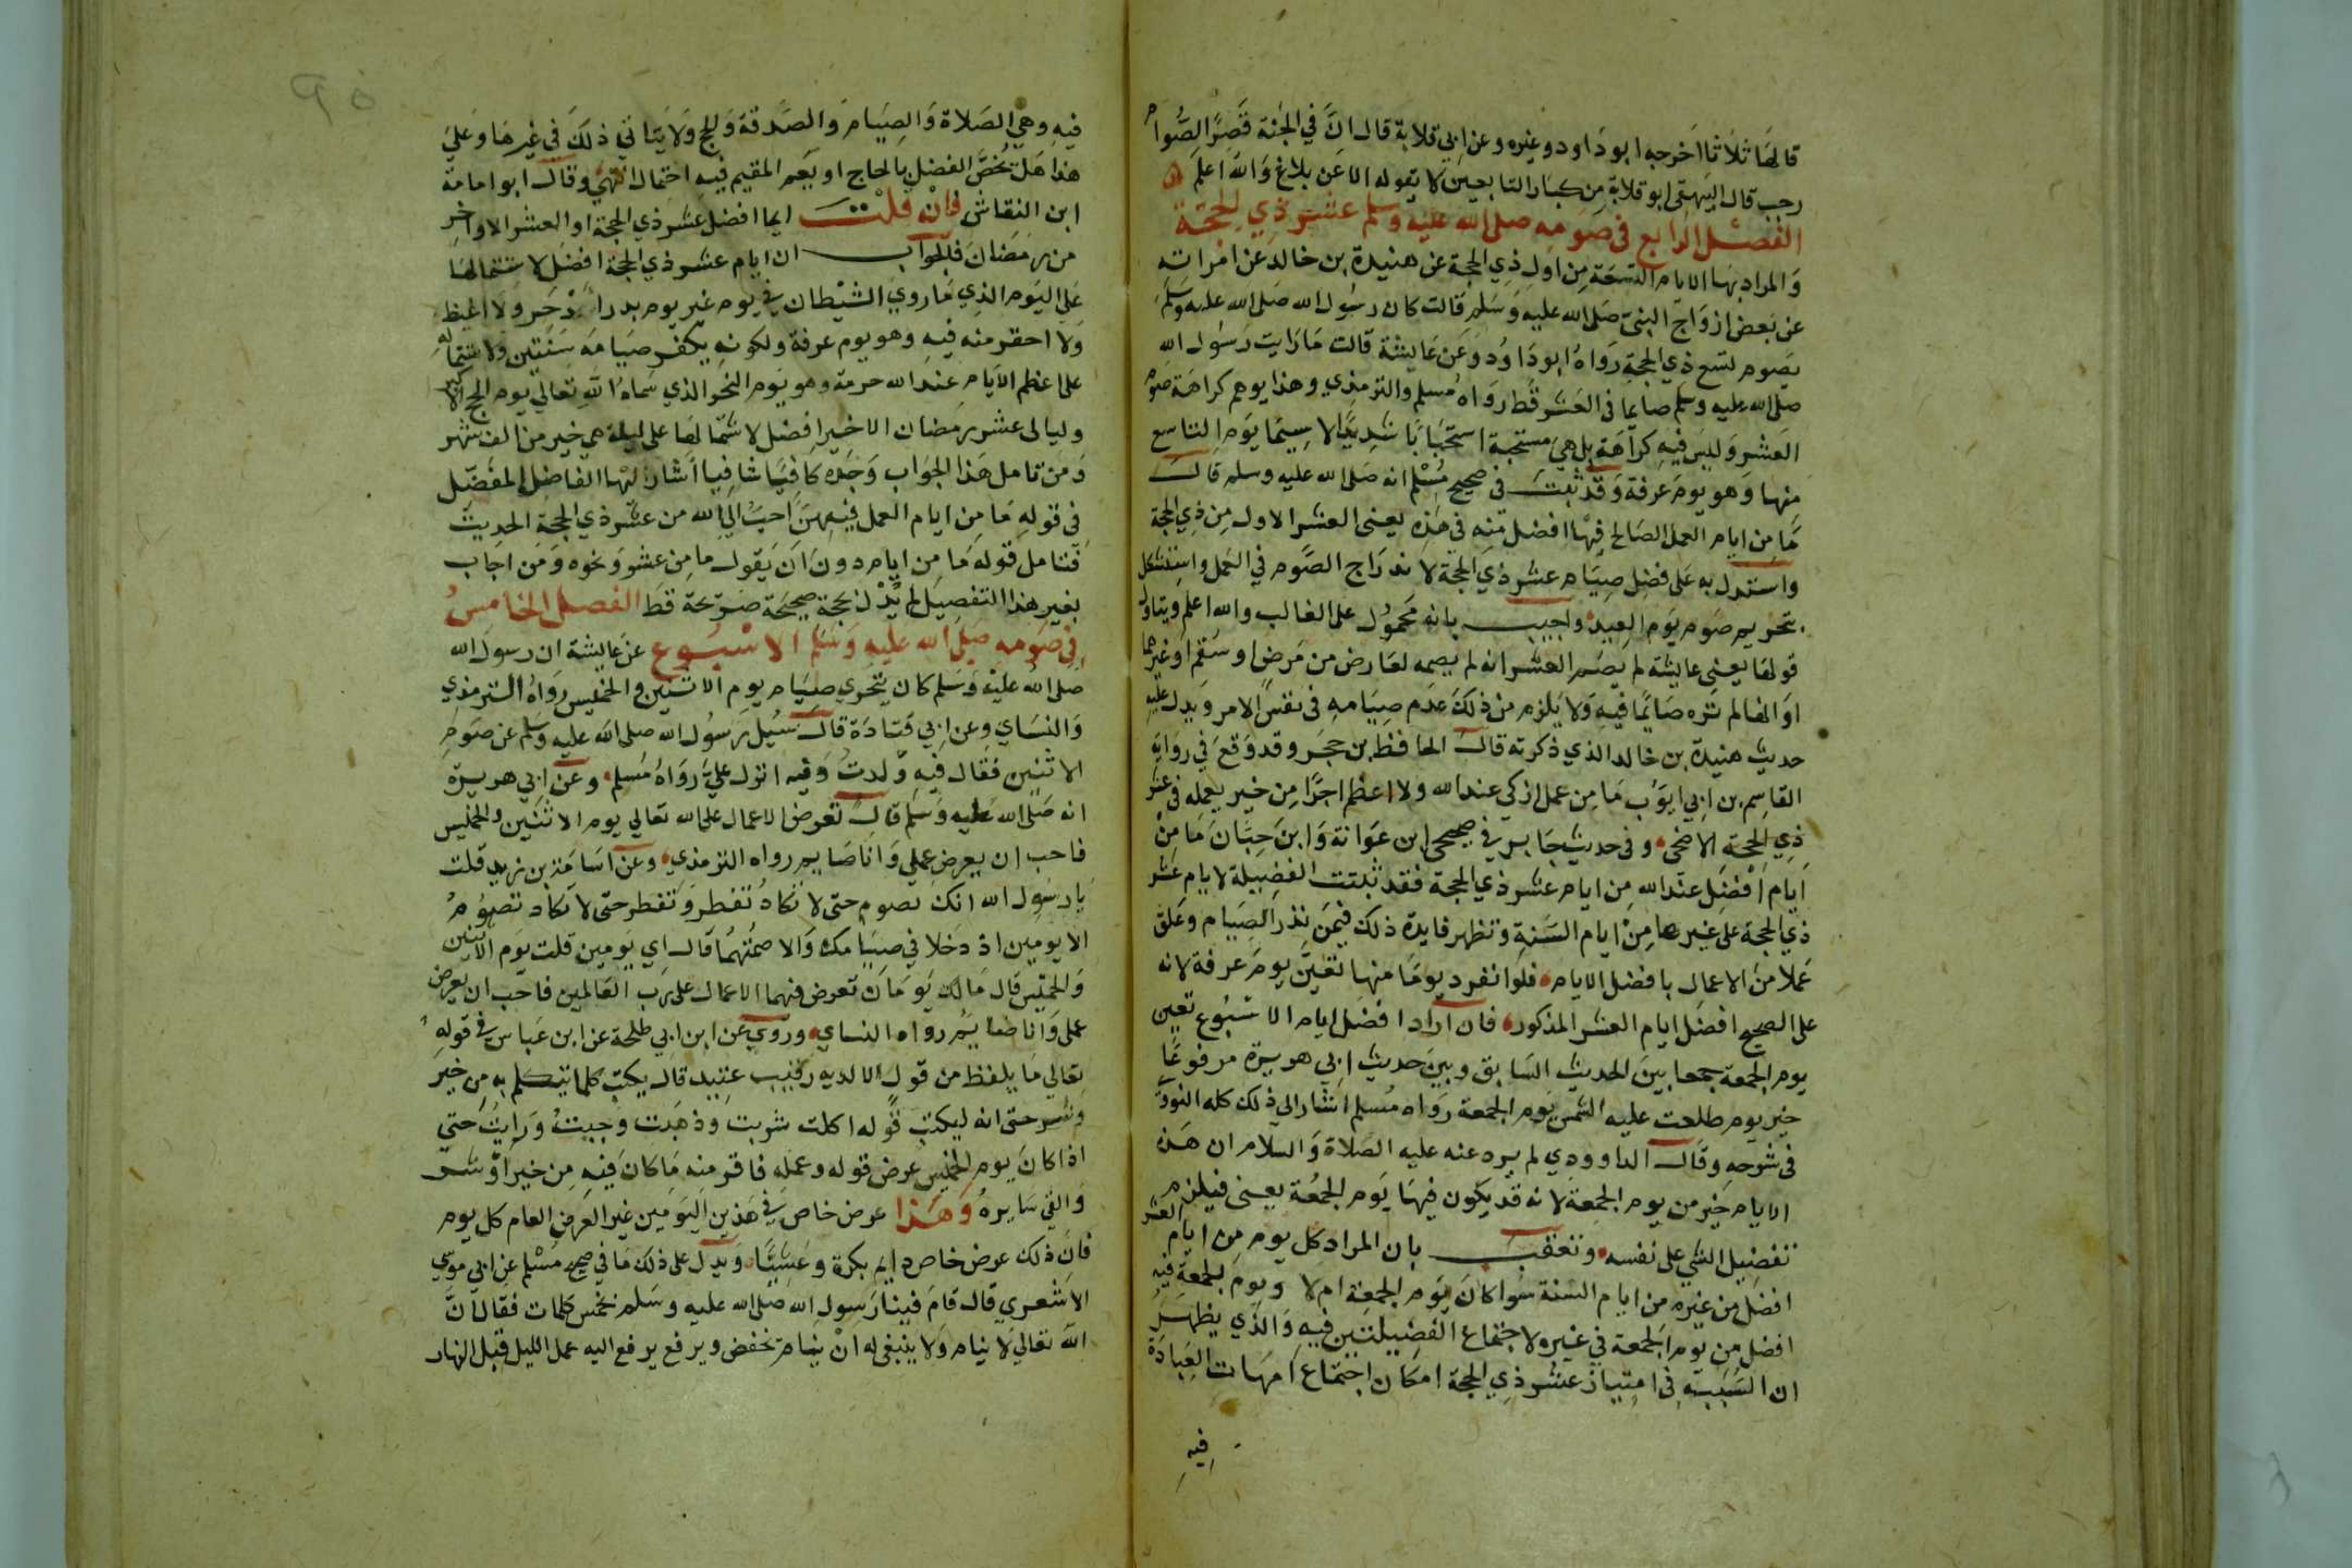 قالها ثلاثا اخرجه ابو داود وغيره وعن ابي قلابة قال ان في الجنة قصرا لصوام
رجب قال البيهقي ابو قلابة من كبار التابعين لا يقوله الا عن بلاغ والله اعلم
الفصل الرابع في صومه صلى الله عليه وسلم عشر ذي الحجة
والمراد بها الايام التسعة من اول ذي الحجة عن هنيدة بن خالد عن امراته
عن بعض ازواج النبي صلى الله عليه وسلم قالت كان رسول الله صلى الله عليه وسلم
يصوم تسع ذي الحجة رواه ابو داود وعن عايشة قالت ما رايت رسول الله
صلى الله عليه وسلم صايما في العشر قط رواه مسلم والترمذي وهذا يوهم كراهة صوم
العشر وليس فيه كراهة بل هي مستحبة استحبابا شديدا لا سيما يوم التاسع
منها وهو يوم عرفة وقد ثبت في صحيح مسلم انه صلى الله عليه وسلم قال
ما من ايام العمل الصالح فيها افضل منه في هذه يعني العشر الاول من ذي الحجة
واستدل به على فضل صيام عشر ذي الحجة لاندراج الصوم في العمل واستشكل
بتحريم صوم يوم العيد واجيب بانه محمول على الغالب والله اعلم ويتاول
قولها يعني عايشة لم يصم العشر انه لم يصمه لعارض من مرض او سقم او غيرهما
او انها لم تره صائما فيه ولا يلزم من ذلك عدم صيامه في نفس الامر ويدل عليه
حديث هنيدة بن خالد الذي ذكرته قال الحافظ بن حجر وقد وقع في رواية
القاسم بن ابي ايوب ما من عمل ازكى عند الله ولا اعظم اجرا من خير يعمله في عشر
ذي الحجة الاضحى وفي حديث جابر في صحيحي ابن عوانة وابن حبان ما من
ايام افضل عند الله من ايام عشر ذي الحجة فقد ثبتت الفضيلة لايام عشر
ذي الحجة على غيرها من ايام السنة وتظهر فايدة ذلك فيمن نذر الصيام وعلق
عملا من الاعمال بافضل الايام فلو انفرد يوما منها تعين يوم عرفة لانه
على الصحيح افضل ايام العشر المذكور فان اراد افضل ايام الاسبوع تعين
يوم الجمعة جمعا بين الحديث السابق وبين حديث ابي هريرة مرفوعا
خير يوم طلعت عليه الشمس يوم الجمعة رواه مسلم اشار الى ذلك كله النووي
في شرحه وقال الداوودي لم يرد عنه عليه الصلاة والسلام ان هذه
الايام خير من يوم الجمعة لانه قد يكون فيها يوم الجمعة يعني فيلزم
تفضيل الشي على نفسه وتعقب بان المراد كل يوم من ايام العشر
افضل من غيره من ايام السنة سوا كان يوم الجمعة ام لا ويوم الجمعة فيه
افضل من يوم الجمعة في غيره لاجتماع الفضيلتين فيه والذي يظهر
ان السبب في امتياز عشر ذي الحجة امكان اجتماع امهات العبادة
فيه
٩٥
فيه وهي الصلاة والصيام والصدقة والحج ولا يتاتى ذلك في غيرها وعلى
هذا هل تخص الفضل بالحاج او يعم المقيم فيه احتمال انتهى وقال ابو امامة
ابن النقاش فان قلت ايما افضل عشر ذي الحجة او العشر الاواخر
من رمضان فالجواب ان ايام عشر ذي الحجة افضل لاشتمالها
على اليوم الذي ما روي الشيطان في يوم غير يوم بدر ادحر ولا اغيظ
ولا احقر منه فيه وهو يوم عرفة ولكونه يكفر صيامه سنتين ولاشتماله
على اعظم الايام عند الله حرمة وهو يوم النحر الذي سماه الله تعالى يوم الحج الاكبر
وليالي عشر رمضان الاخير افضل لاشتمالها على ليلة هي خير من الف شهر
ومن تامل هذا الجواب وجده كافيا شافيا اشار اليها الفاضل المفضل
في قوله ما من ايام العمل فيهن احب الى الله من عشر ذي الحجة الحديث
فتامل قوله ما من ايام دون ان يقول ما من عشر ونحوه ومن اجاب
بغير هذا التفصيل لم يدل بحجة صحيحة صريحة قط الفصل الخامس
في صومه صلى الله عليه وسلم الاسبوع عن عايشة ان رسول الله
صلى الله عليه وسلم كان يتحرى صيام يوم الاثنين والخميس رواه الترمذي
والنساي وعن ابي قتادة قال سيل رسول الله صلى الله عليه وسلم عن صوم
الاثنين فقال فيه ولدت وفيه انزل علي رواه مسلم وعن ابي هريرة
انه صلى الله عليه وسلم قال تعرض الاعمال على الله تعالى يوم الاثنين والخميس
فاحب ان يعرض عملي وانا صايم رواه الترمذي وعن اسامة بن زيد قلت
يا رسول الله انك تصوم حتى لا تكاد تفطر وتفطر حتى لا تكاد تصوم
الا يومين اذ دخلا في صيامك والا صمتهما قال اي يومين قلت يوم الاثنين
والخميس قال ذانك يومان تعرض فيهما الاعمال على رب العالمين فاحب ان يعرض
عملي وانا صايم رواه النساي وروي عن ابن ابي طلحة عن ابن عباس في قوله
تعالى ما يلفظ من قول الا لديه رقيب عتيد قال يكتب كلما تيكلم به من خير
وشر حتى انه ليكتب قوله اكلت شربت وذهبت وجيت ورايت حتى
اذا كان يوم الخميس عرض قوله وعمله فاقر منه ما كان فيه من خير او شر
والقي سايره وهذا عرض خاص في هذين اليومين غير العرض العام كل يوم
فان ذلك عرض خاص دايم بكرة وعشيا ويدل على ذلك ما في صحيح مسلم عن ابي موسى
الاشعري قال قام فينا رسول الله صلى الله عليه وسلم بخمس كلمات فقال ان
الله تعالى لا ينام ولا ينبغي له ان ينام يخفض ويرفع يرفع اليه عمل الليل قبل النهار